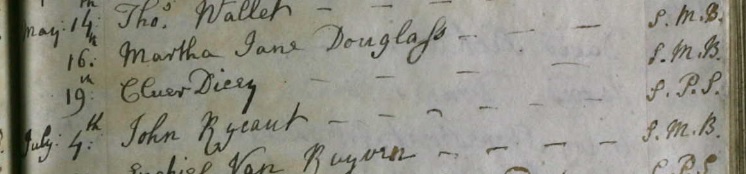 May: 14th: Thos. Wallet — — — S. M. B.
16:th Martha Jane Douglass — — — S. M. B.
19:th Cluer Dicey — — — S. P. S.
July: 4:th John Rycaut — — — — — S. M. B.
Ezekiel Van Ruyven — — — — S. P. S.